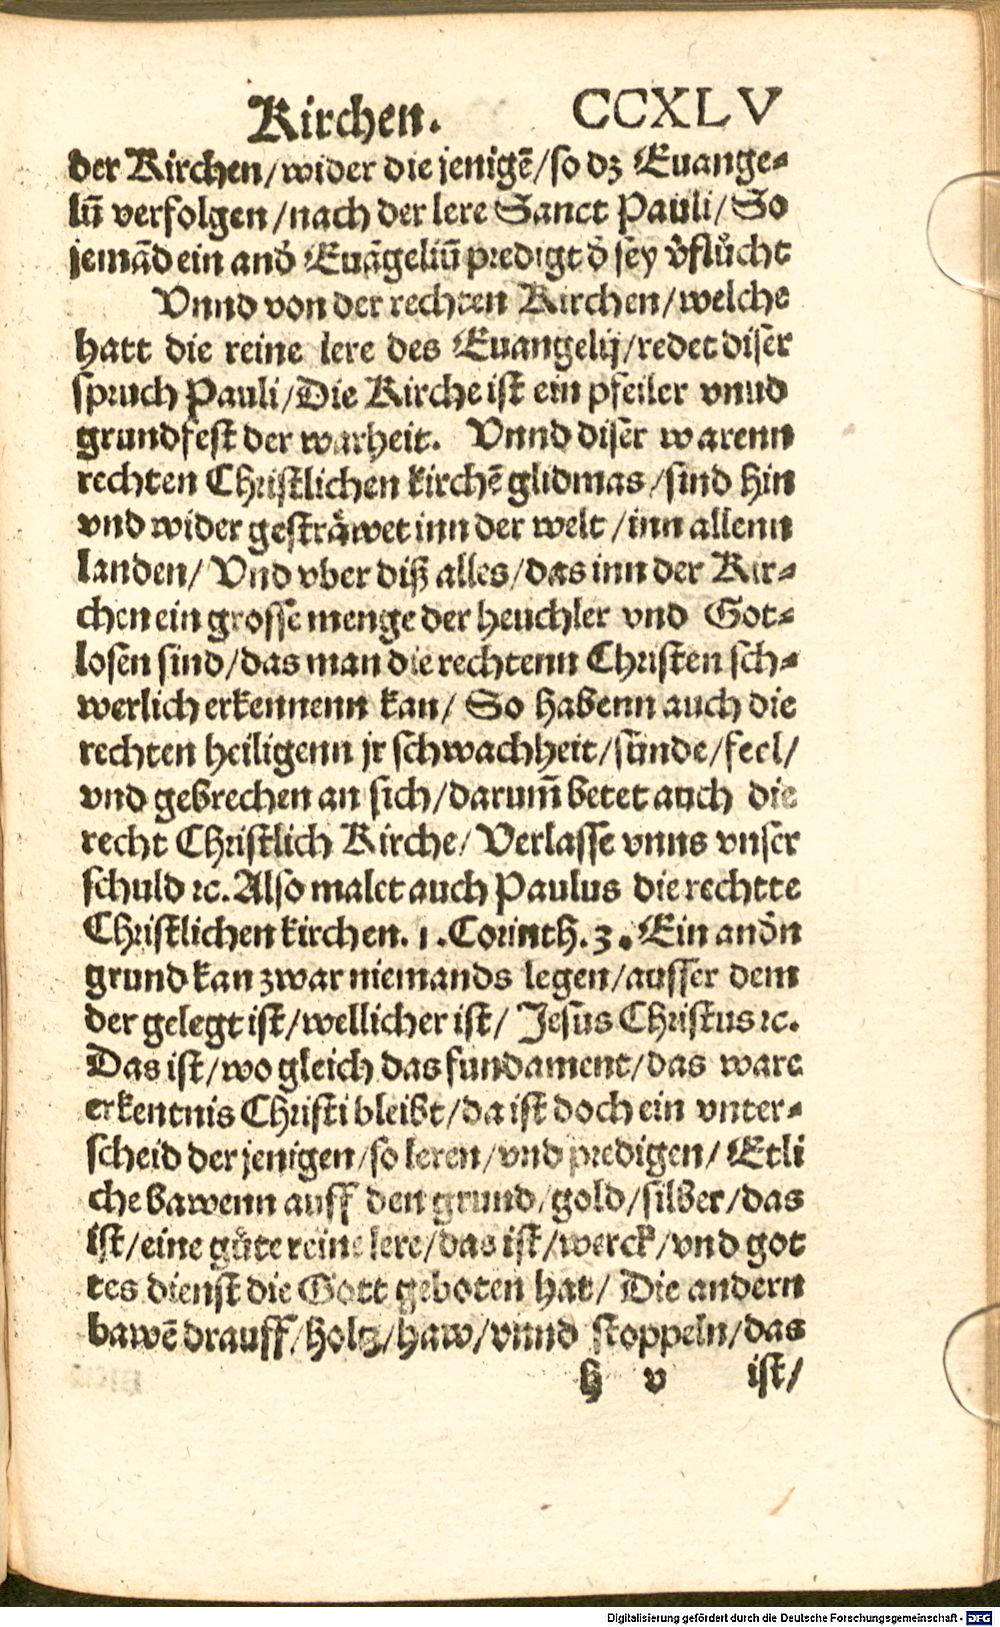 Kirchen. CCXLV
der Kirchen/wider die jenigẽ/so dz Euange-
liũ verfolgen/nach der lere Sanct Pauli/So
jemãd ein andʼ Euãgeliũ predigt dʼ sey vʼflůcht
Vnnd von der rechten Kirchen/welche
hatt die reine lere des Euangelij/redet diser
spruch Pauli/Die Kirche ist ein pfeiler vnud
grundfest der warheit. Vnnd diser warenn
rechten Christlichen kirchẽ glidmas/sind hin
vnd wider gesträwet inn der welt/inn allenn
landen/ Vnd vber diß alles/das inn der Kir-
chen ein grosse menge der heuchler vnd Got-
losen sind/das man die rechtenn Christen sch-
werlich erkennenn kan/ So habenn auch die
rechten heiligenn jr schwachheit/sünde/feel/
vnd gebrechen an sich/darum̃ betet auch die
recht Christlich Kirche/ Verlasse vnns vnser
schuld ꝛc. Also malet auch Paulus die rechtte
Christlichen kirchen. 1. Corinth. 3. Ein andʼn
grund kan zwar niemands legen/ausser dem
der gelegt ist/wellicher ist/ Jesus Christus ꝛc.
Das ist/wo gleich das fundament/das ware
erkentnis Christi bleibt/da ist doch ein vnter-
scheid der jenigen/so leren/vnd predigen/ Etli
che bawenn auff den grund/gold/silber/das
ist/eine gůte reine lere/das ist/werck/vnd got
tes dienst die Gott geboten hat/ Die andern
bawẽ drauff/holtz/haw/vnnd stoppeln/das
h v ist/
Digitalisierung gefördert durch die Deutsche Forschungsgemeinschaft - DFG